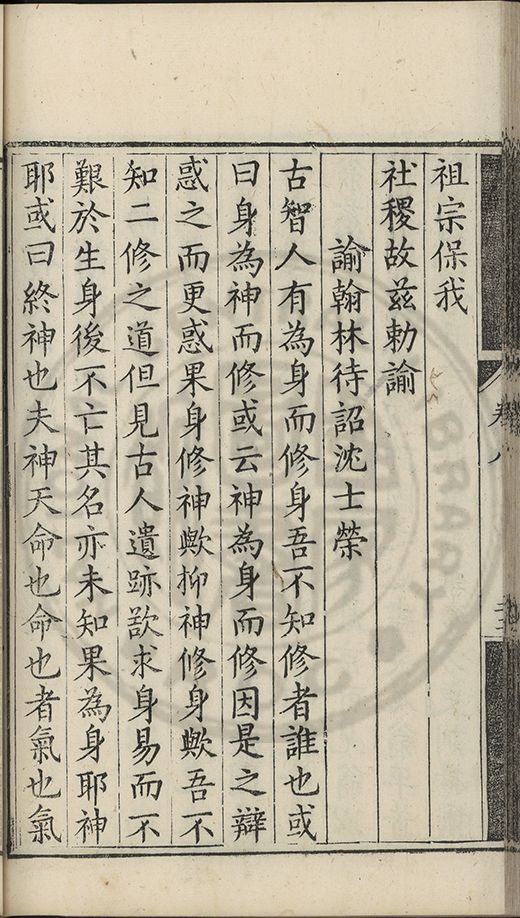 祖宗保我
社稷故茲勅諭
諭翰林待詔沈士榮
古智人有為身而修身吾不知修者誰也或
曰身為神而修或云神為身而修因是之辯
惑之而更惑果身修神歟抑神修身歟吾不
知二修之道但見古人遺跡欲求身易而不
艱於生身後不亡其名亦未知果為身耶神
耶或曰終神也夫神天命也命也者氣也氣